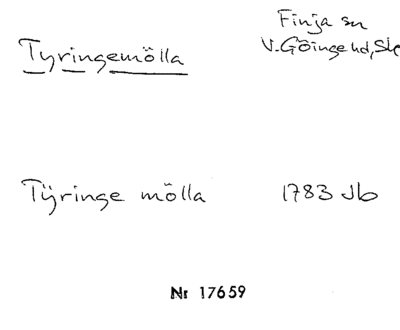 Finja sn
Tyringemölla V.Göinge hd, Sk
Tÿringe mölla 1783 Jb
Nr 17659